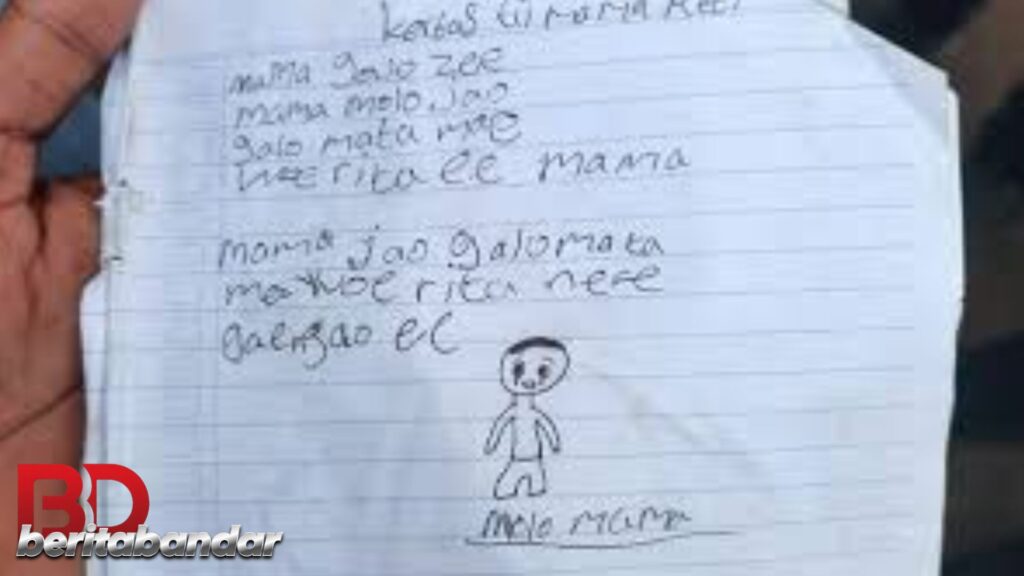 kertas tii mama Reti
mama galo zee
mama molo jao
galo mata mae
woe rita ee mama
mama jao galo mata
mae woe rita nee
gaengao ee
molo mama
BD
beritabandar